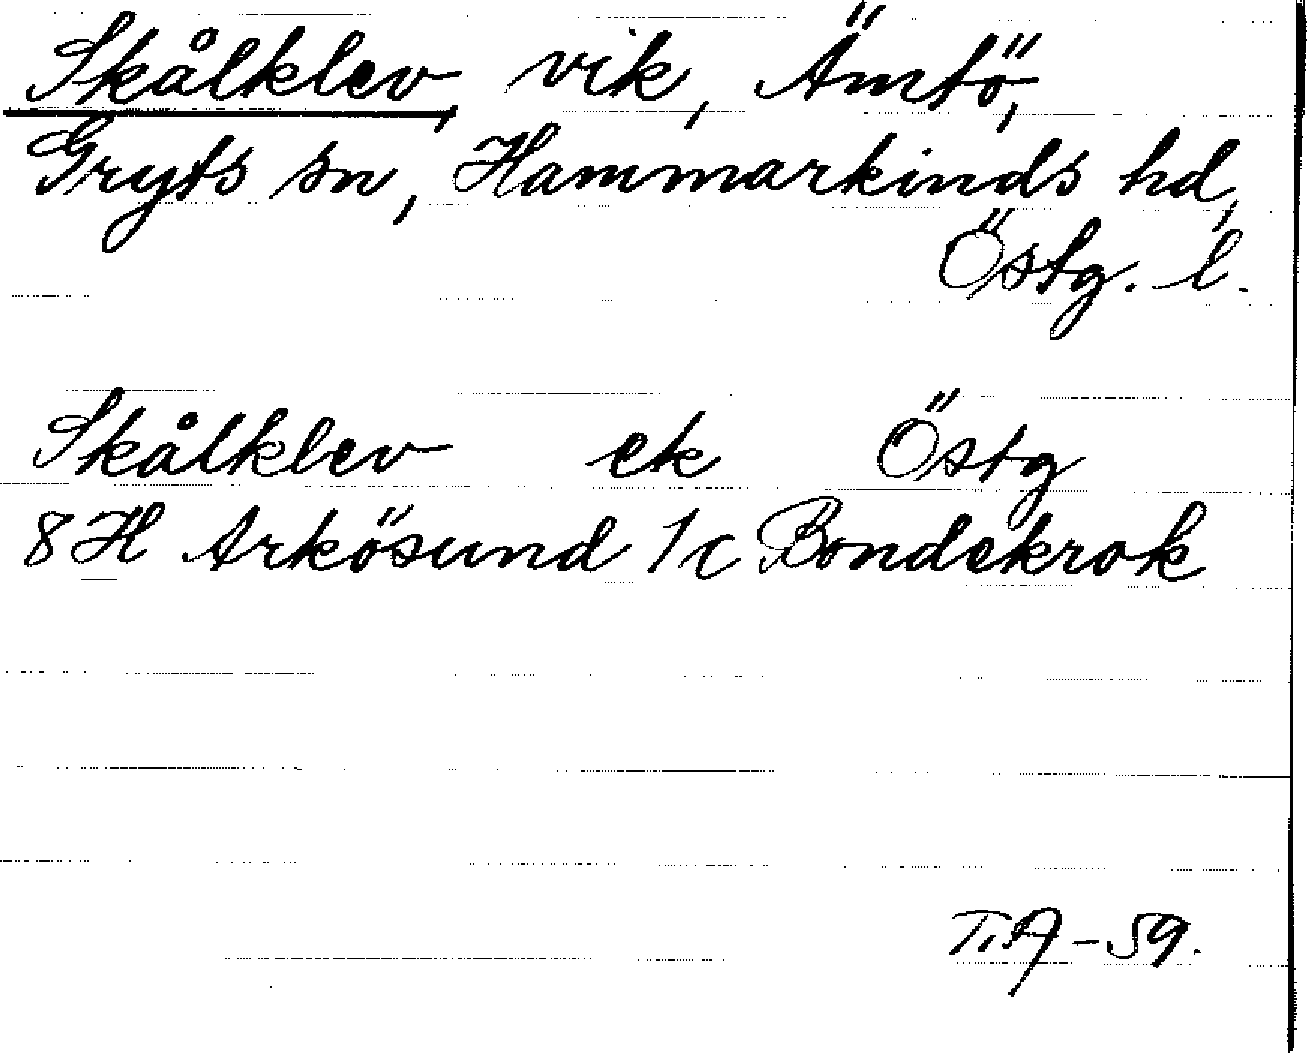 Skålklev, vik, Ämtö,
Gryts sn, Hammarkinds hd,
Östg. l.
Skålklev ek Östg
8H Arkösund 1c Bondekrok
T.A -59.